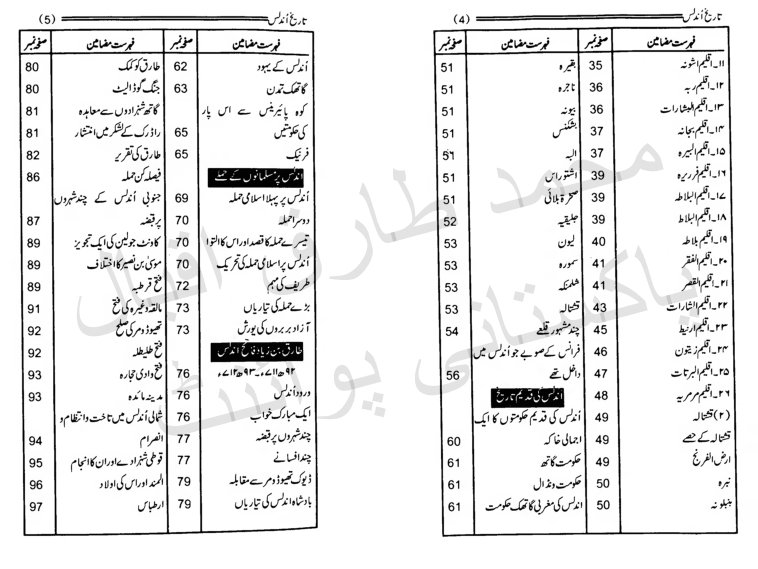 تاریخ اُندلس (4)
فہرست مضامین صفحہ نمبر
۱۱۔ اقلیم اشونہ 35
۱۲۔ اقلیم ریہ 36
۱۳۔ اقلیم البشارات 36
۱۴۔ اقلیم بجانہ 37
۱۵۔ اقلیم البیرہ 37
۱۶۔ اقلیم فرریرہ 39
۱۷۔ اقلیم البلالطہ 39
۱۸۔ اقلیم البلاط 39
۱۹۔ اقلیم بلاطہ 40
۲۰۔ اقلیم الفقر 41
۲۱۔ اقلیم القصر 41
۲۲۔ اقلیم الشارات 43
۲۳۔ اقلیم ارنیط 45
۲۴۔ اقلیم زیتون 46
۲۵۔ اقلیم البرتات 47
۲۶۔ اقلیم مرمریہ 48
(۲) قشتالہ 49
قشتالہ کے حصے 49
ارض الفرنج 49
نبرہ 50
بنبلونہ 50
فہرست مضامین صفحہ نمبر
بقیرہ 51
ناجرہ 51
بیونہ 51
بشکنس 51
البہ 51
اشتوراس 51
صخرۃ بلائی 51
جلیقیہ 52
لیون 53
سمورہ 53
شلمنکہ 53
قشتالہ 53
چند مشہور قلعے 54
فرانس کے صوبے جو اُندلس میں
داخل تھے 56
اُندلس کی قدیم تاریخ
اُندلس کی قدیم حکومتوں کا ایک
اجمالی خاکہ 60
حکومت گاتھ 61
حکومت ونڈال 61
اندلس کی مغربی گاتھک حکومت 61
تاریخ اُندلس (5)
فہرست مضامین صفحہ نمبر
اُندلس کے یہود 62
گاتھک تمدن 63
کوہ پائیرینس سے اس پار
کی حکومتیں 65
فرنیک 65
اندلس پر مسلمانوں کے حملے
اُندلس پر پہلا اسلامی حملہ 69
دوسرا حملہ 70
تیسرے حملہ کا قصد اور اس کا التوا 70
اُندلس پر اسلامی حملہ کی تحریک 70
طریف کی مہم 72
بڑے حملہ کی تیاریاں 73
آزاد بربروں کی یورش 73
طارق بن زیاد فاتح اندلس
۹۲ھ ۷۱۱ء ۔ ۹۳ھ ۷۱۲ء 76
ورود اُندلس 76
ایک مبارک خواب 76
چند شہروں پر قبضہ 77
چند افسانے 77
ڈیوک تھیوڈومر سے مقابلہ 79
بادشاہ اندلس کی تیاریاں 79
فہرست مضامین صفحہ نمبر
طارق کو کمک 80
جنگ گوڈالیٹ 80
گاتھ شہزادوں سے معاہدہ 81
راڈرک کے لشکر میں انتشار 81
طارق کی تقریر 82
فیصلہ کن حملہ 86
جنوبی اُندلس کے چند شہروں
پر قبضہ 87
کاونٹ جولین کی ایک تجویز 89
موسیٰ بن نصیر کا اختلاف 89
فتح قرطبہ 89
مالقہ وغیرہ کی فتح 91
تھیوڈومر کی صلح 92
فتح طلیطلہ 92
فتح وادی حجارہ 93
مدینہ مائدہ 93
شمالی اُندلس میں تاخت و انتظام و
انصرام 94
قوطی شہزادے اور ان کا انجام 95
المند اور اس کی اولاد 96
ارطباس 97
محمد طارق اقبال
پاکستانی پوائنٹ